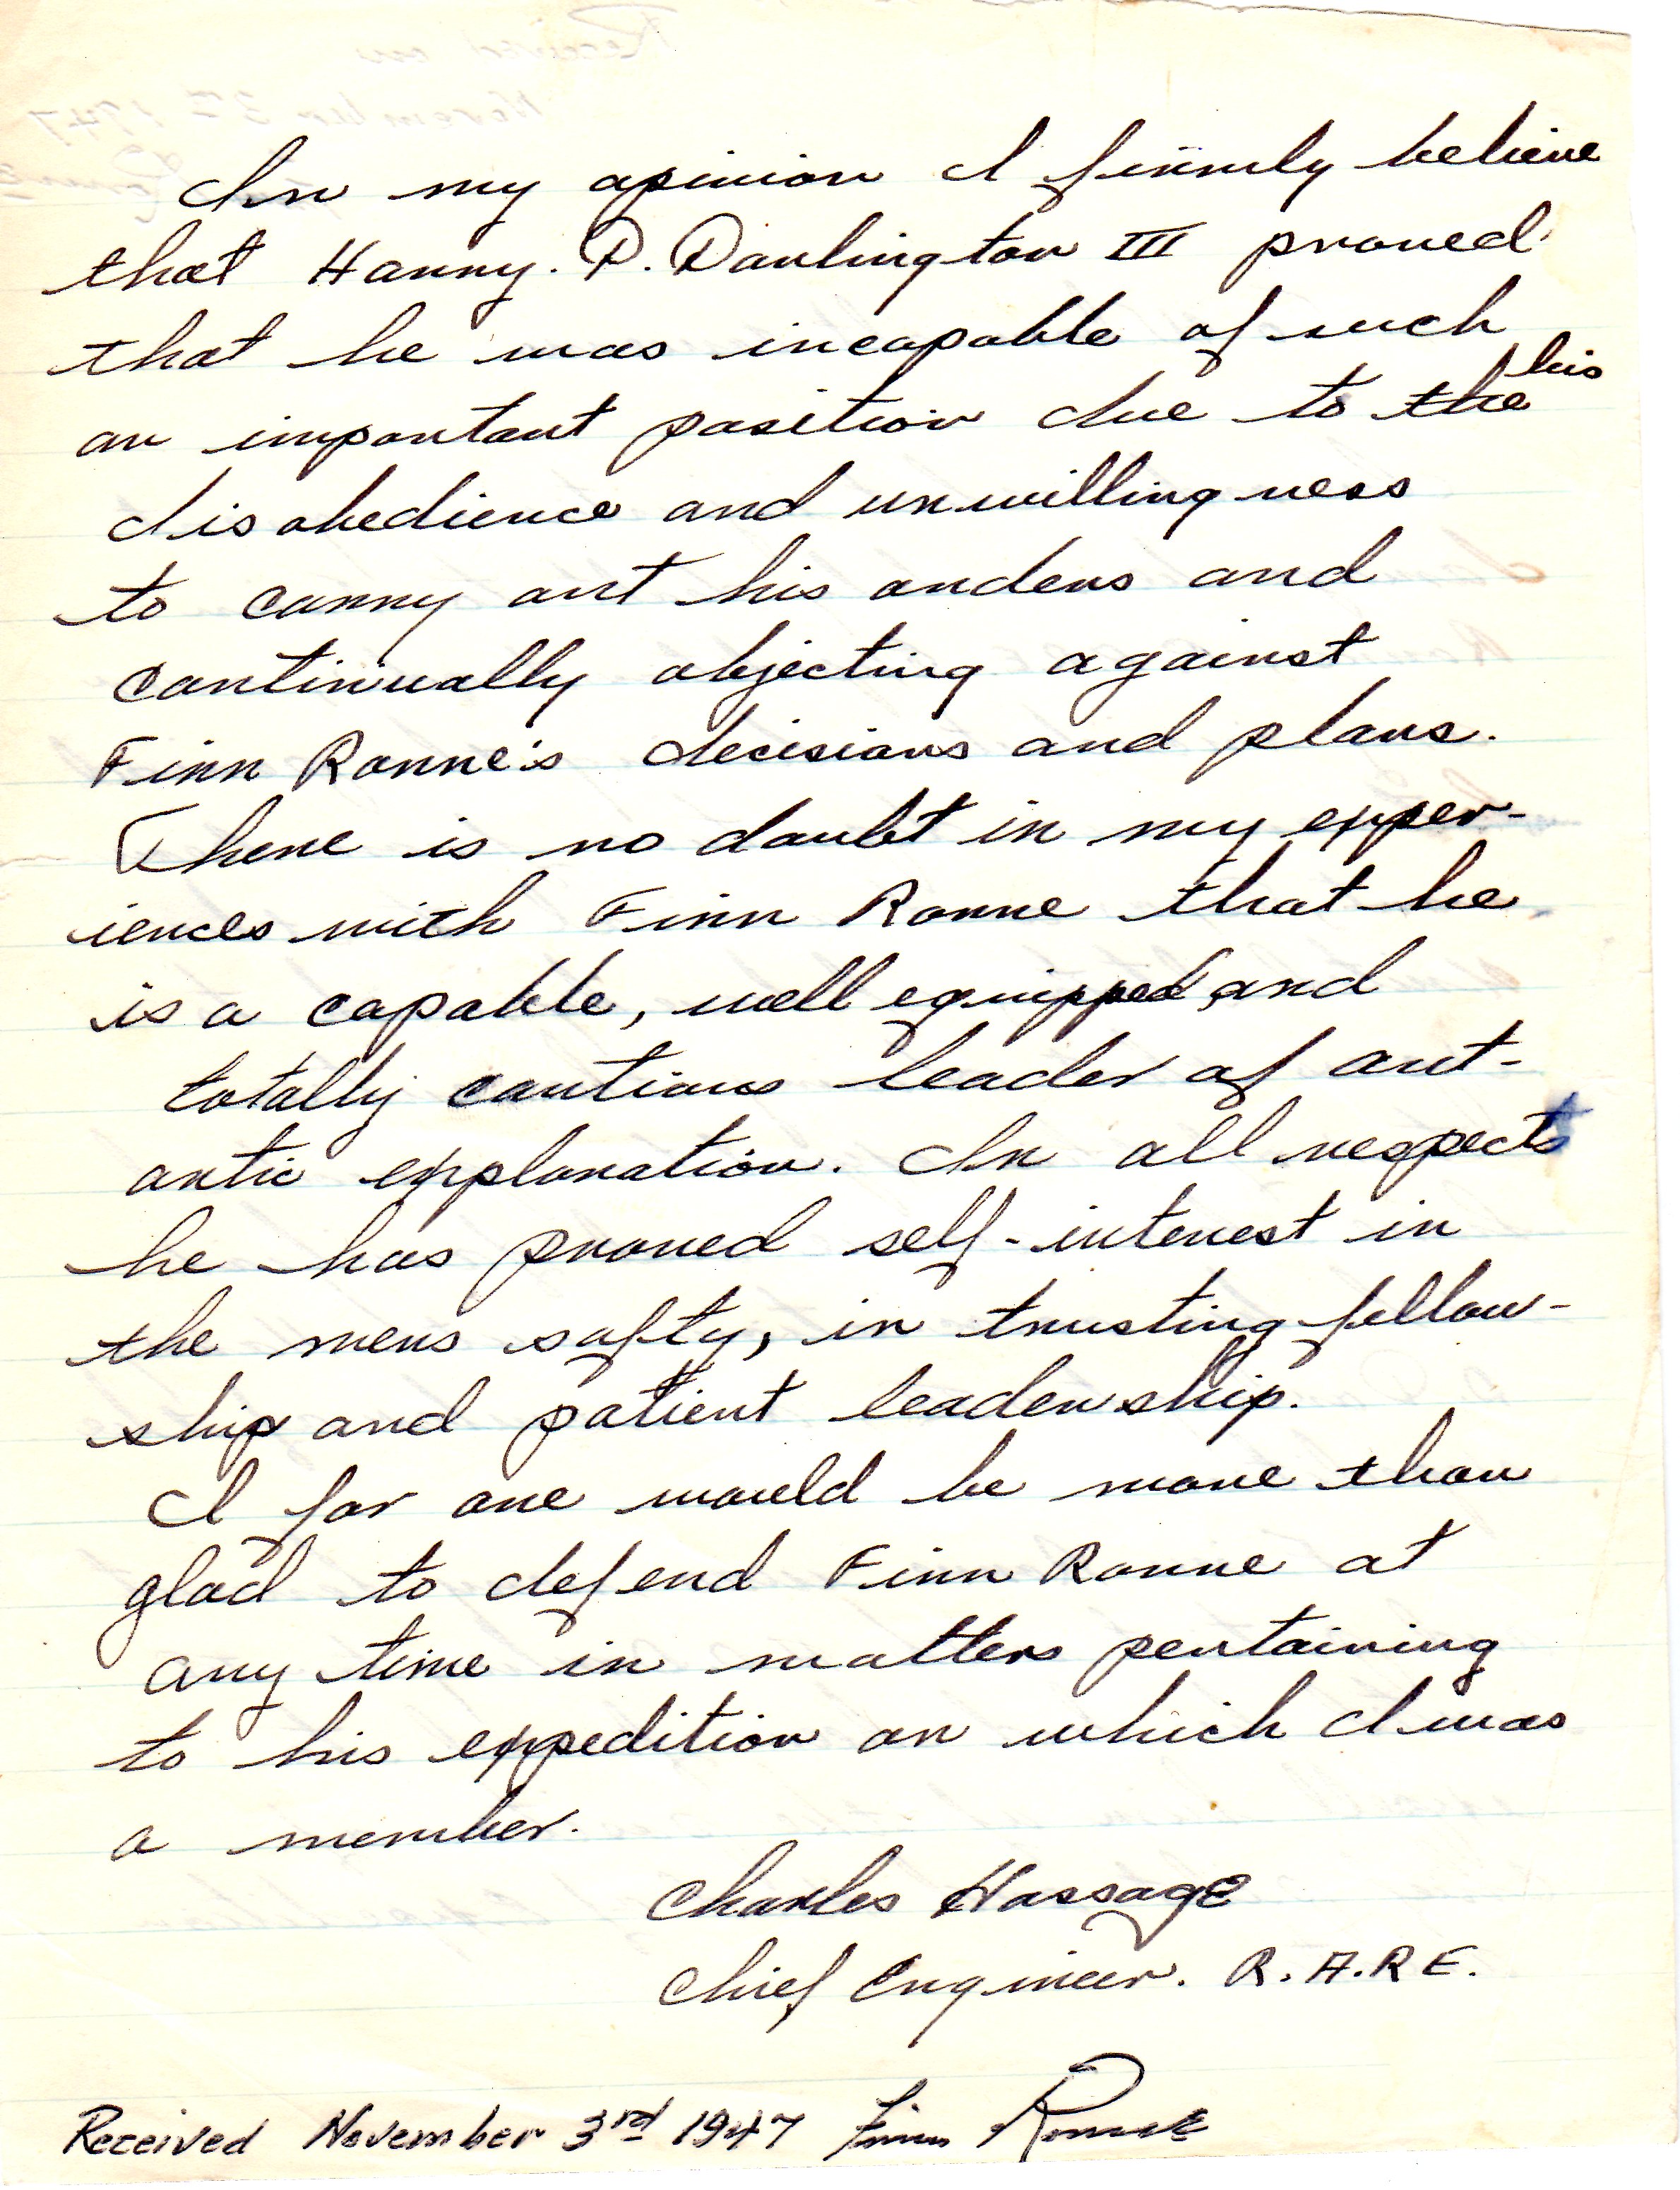 In my opinion I firmly believe
that Harry. P. Darlington III proved
that he was incapable of such
an important position due to the his
disobedience and unwillingness
to carry out his orders and
continually objecting against
Finn Ronne's decisions and plans.
There is no doubt in my exper-
iences with Finn Ronne that he
is a capable, well equipped and
totally cautious leader of ant-
artic exploration. In all respects
he has proved self-interest in
the mens safty, in trusting fellow-
ship and patient leadership.
I for one would be more than
glad to defend Finn Ronne at
any time in matters pertaining
to his expedition on which I was
a member.
Charles Hassage
Chief Engineer. R.A.R E.
Received November 3rd 1947 Finn Ronne